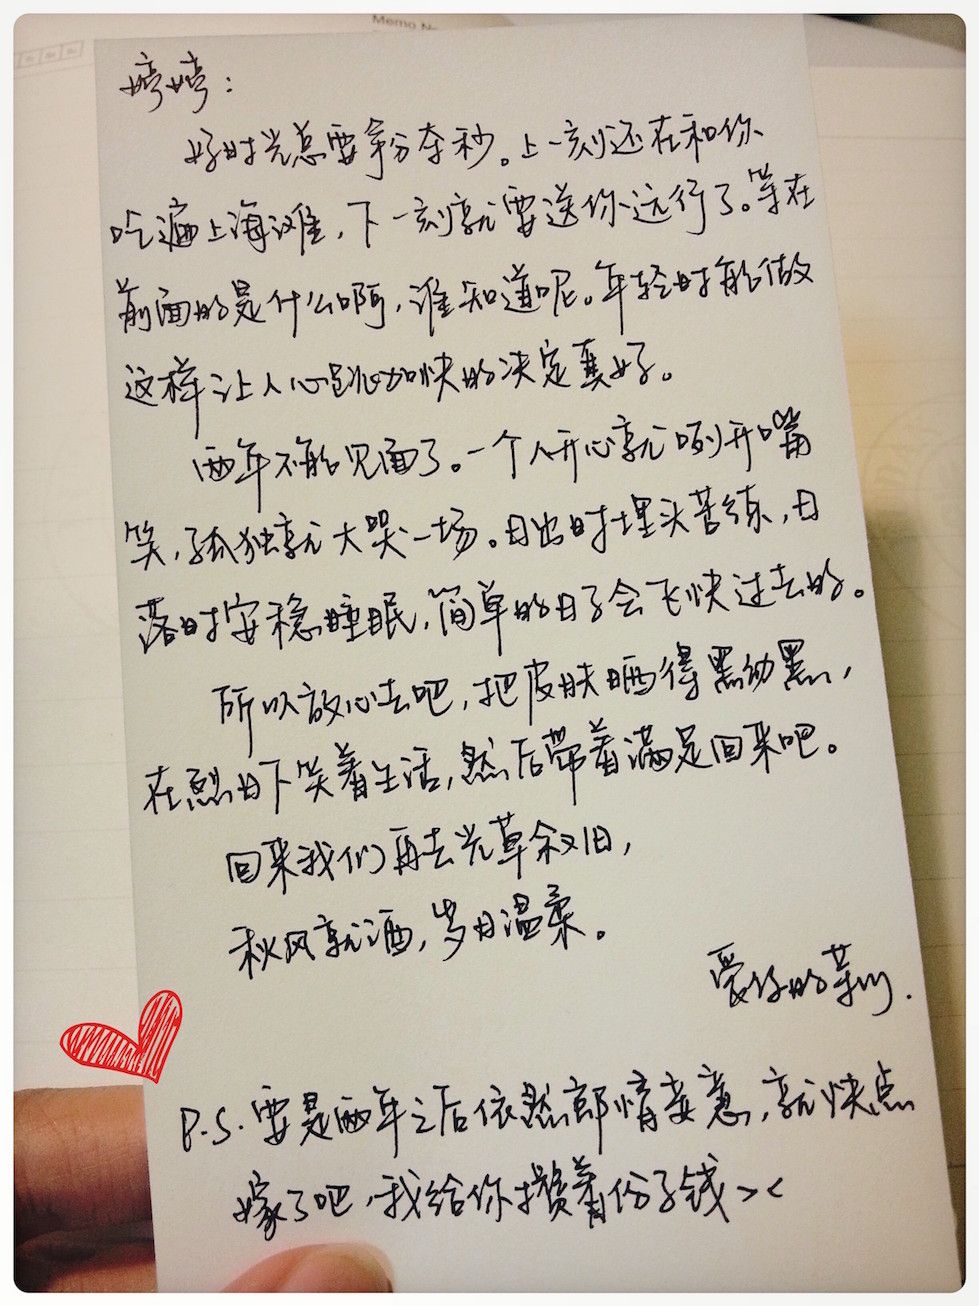 Memo No
婷婷：
好时光总要争分夺秒。上一刻还在和你
吃遍上海滩，下一刻就要送你远行了。等在
前面的是什么啊，谁知道呢。年轻时能做
这样让人心跳加快的决定真好。
两年不能见面了。一个人开心就咧开嘴
笑，孤独就大哭一场。日出时埋头苦练，日
落时安稳睡眠，简单的日子会飞快过去的。
所以放心去吧，把皮肤晒得黑黝黑，
在烈日下笑着生活，然后带着满足回来吧。
回来我们再去光草叙旧，
秋风就酒，岁月温柔。
爱你的
P.S. 要是两年之后依然郎情妾意，就快点
嫁了吧，我给你攒着份子钱><